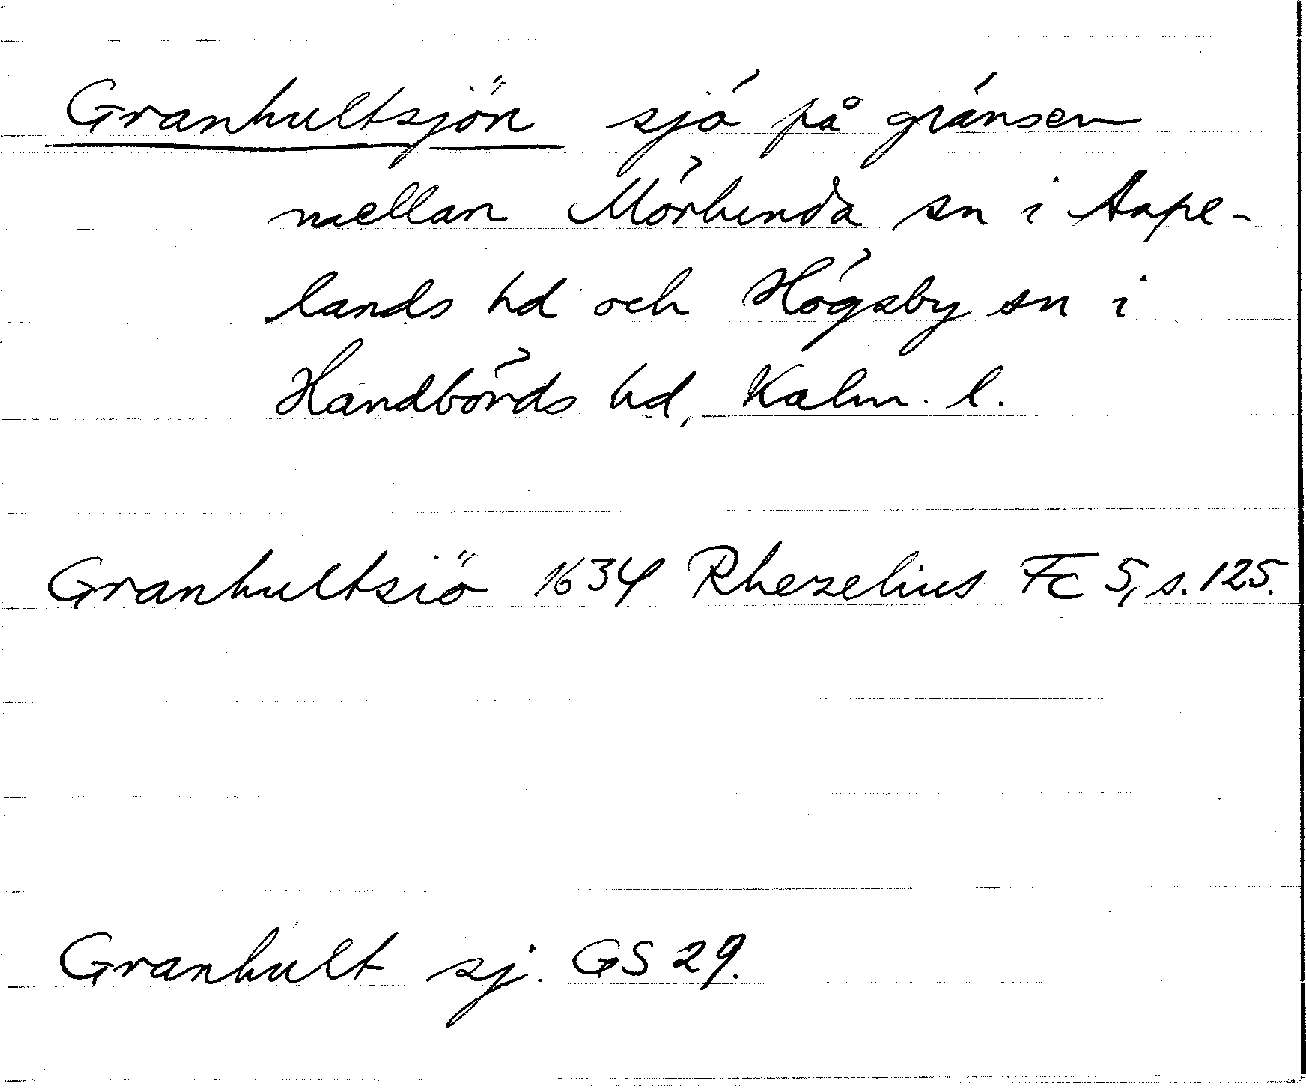 Granhultsjön sjö på gränsen
mellan Mörlunda sn i Aspe-
lands hd och Högsby sn i
Handbörds hd, Kalm. l.
Granhultsiö 1634 Rhezelius Fc 5, s. 125.
Granhult sj. GS 29.